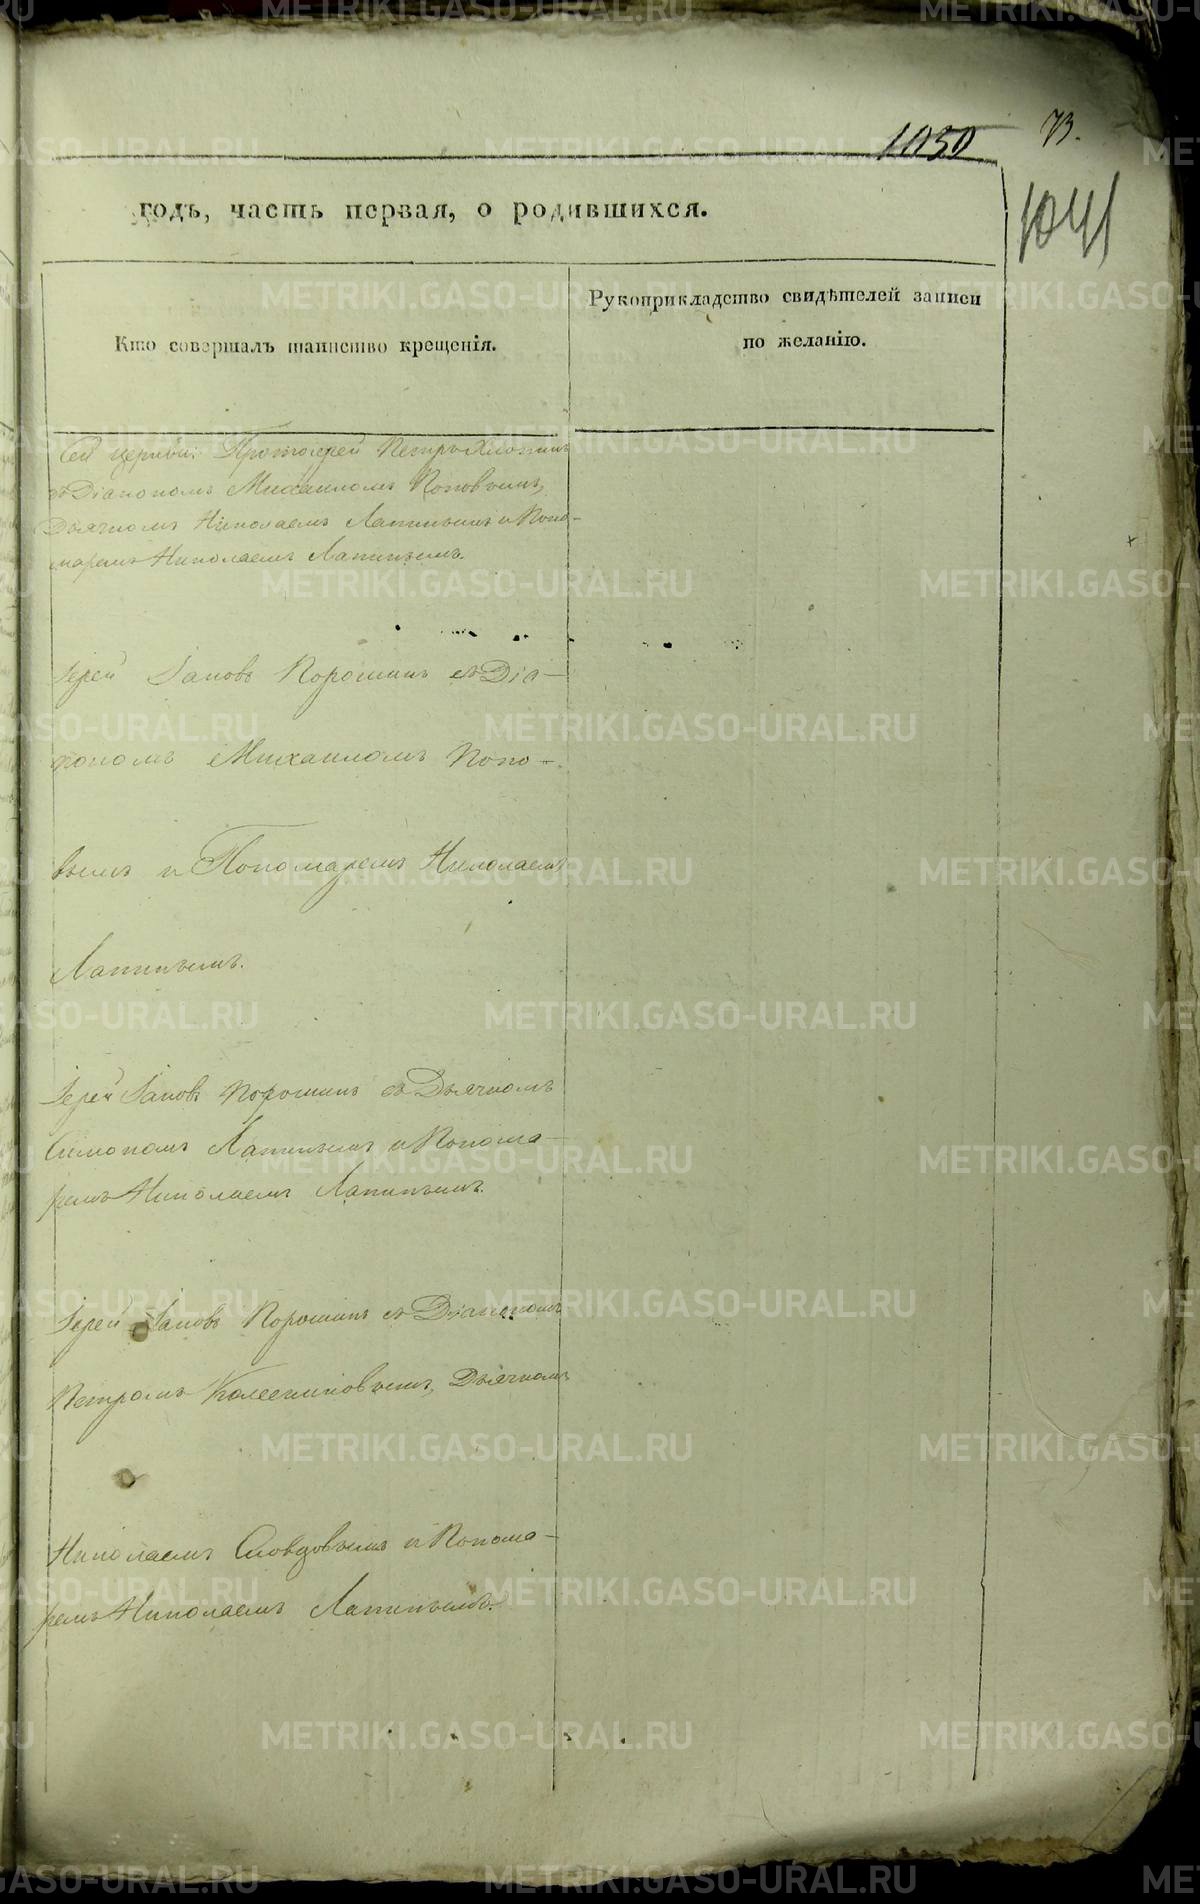 1050
73.
1041
годъ, часть первая, о родившихся.
Кто совершалъ таинство крещенія.
Рукоприкладство свидѣтелей записи
по желанію.
Сей церкви: Протоіерей Петръ
съ Діакономъ Михаиломъ Поповымъ,
Дьячкомъ Николаемъ Лапинымъ и Поно-
маремъ Николаемъ Лапинымъ.
Іерей Іаковъ Порошинъ съ Діа-
кономъ Михаиломъ Попо-
вымъ и Пономаремъ Николаемъ
Лапинымъ.
Іерей Іаковъ Порошинъ съ Дьячкомъ
Симономъ Лапинымъ и Понома-
ремъ Николаемъ Лапинымъ.
Іерей Іаковъ Порошинъ съ Діакономъ
Петромъ Колесниковымъ, Дьячкомъ
Николаемъ Словцовымъ и Понома-
ремъ Николаемъ Лапинымъ.
METRIKI.GASO-URAL.RU